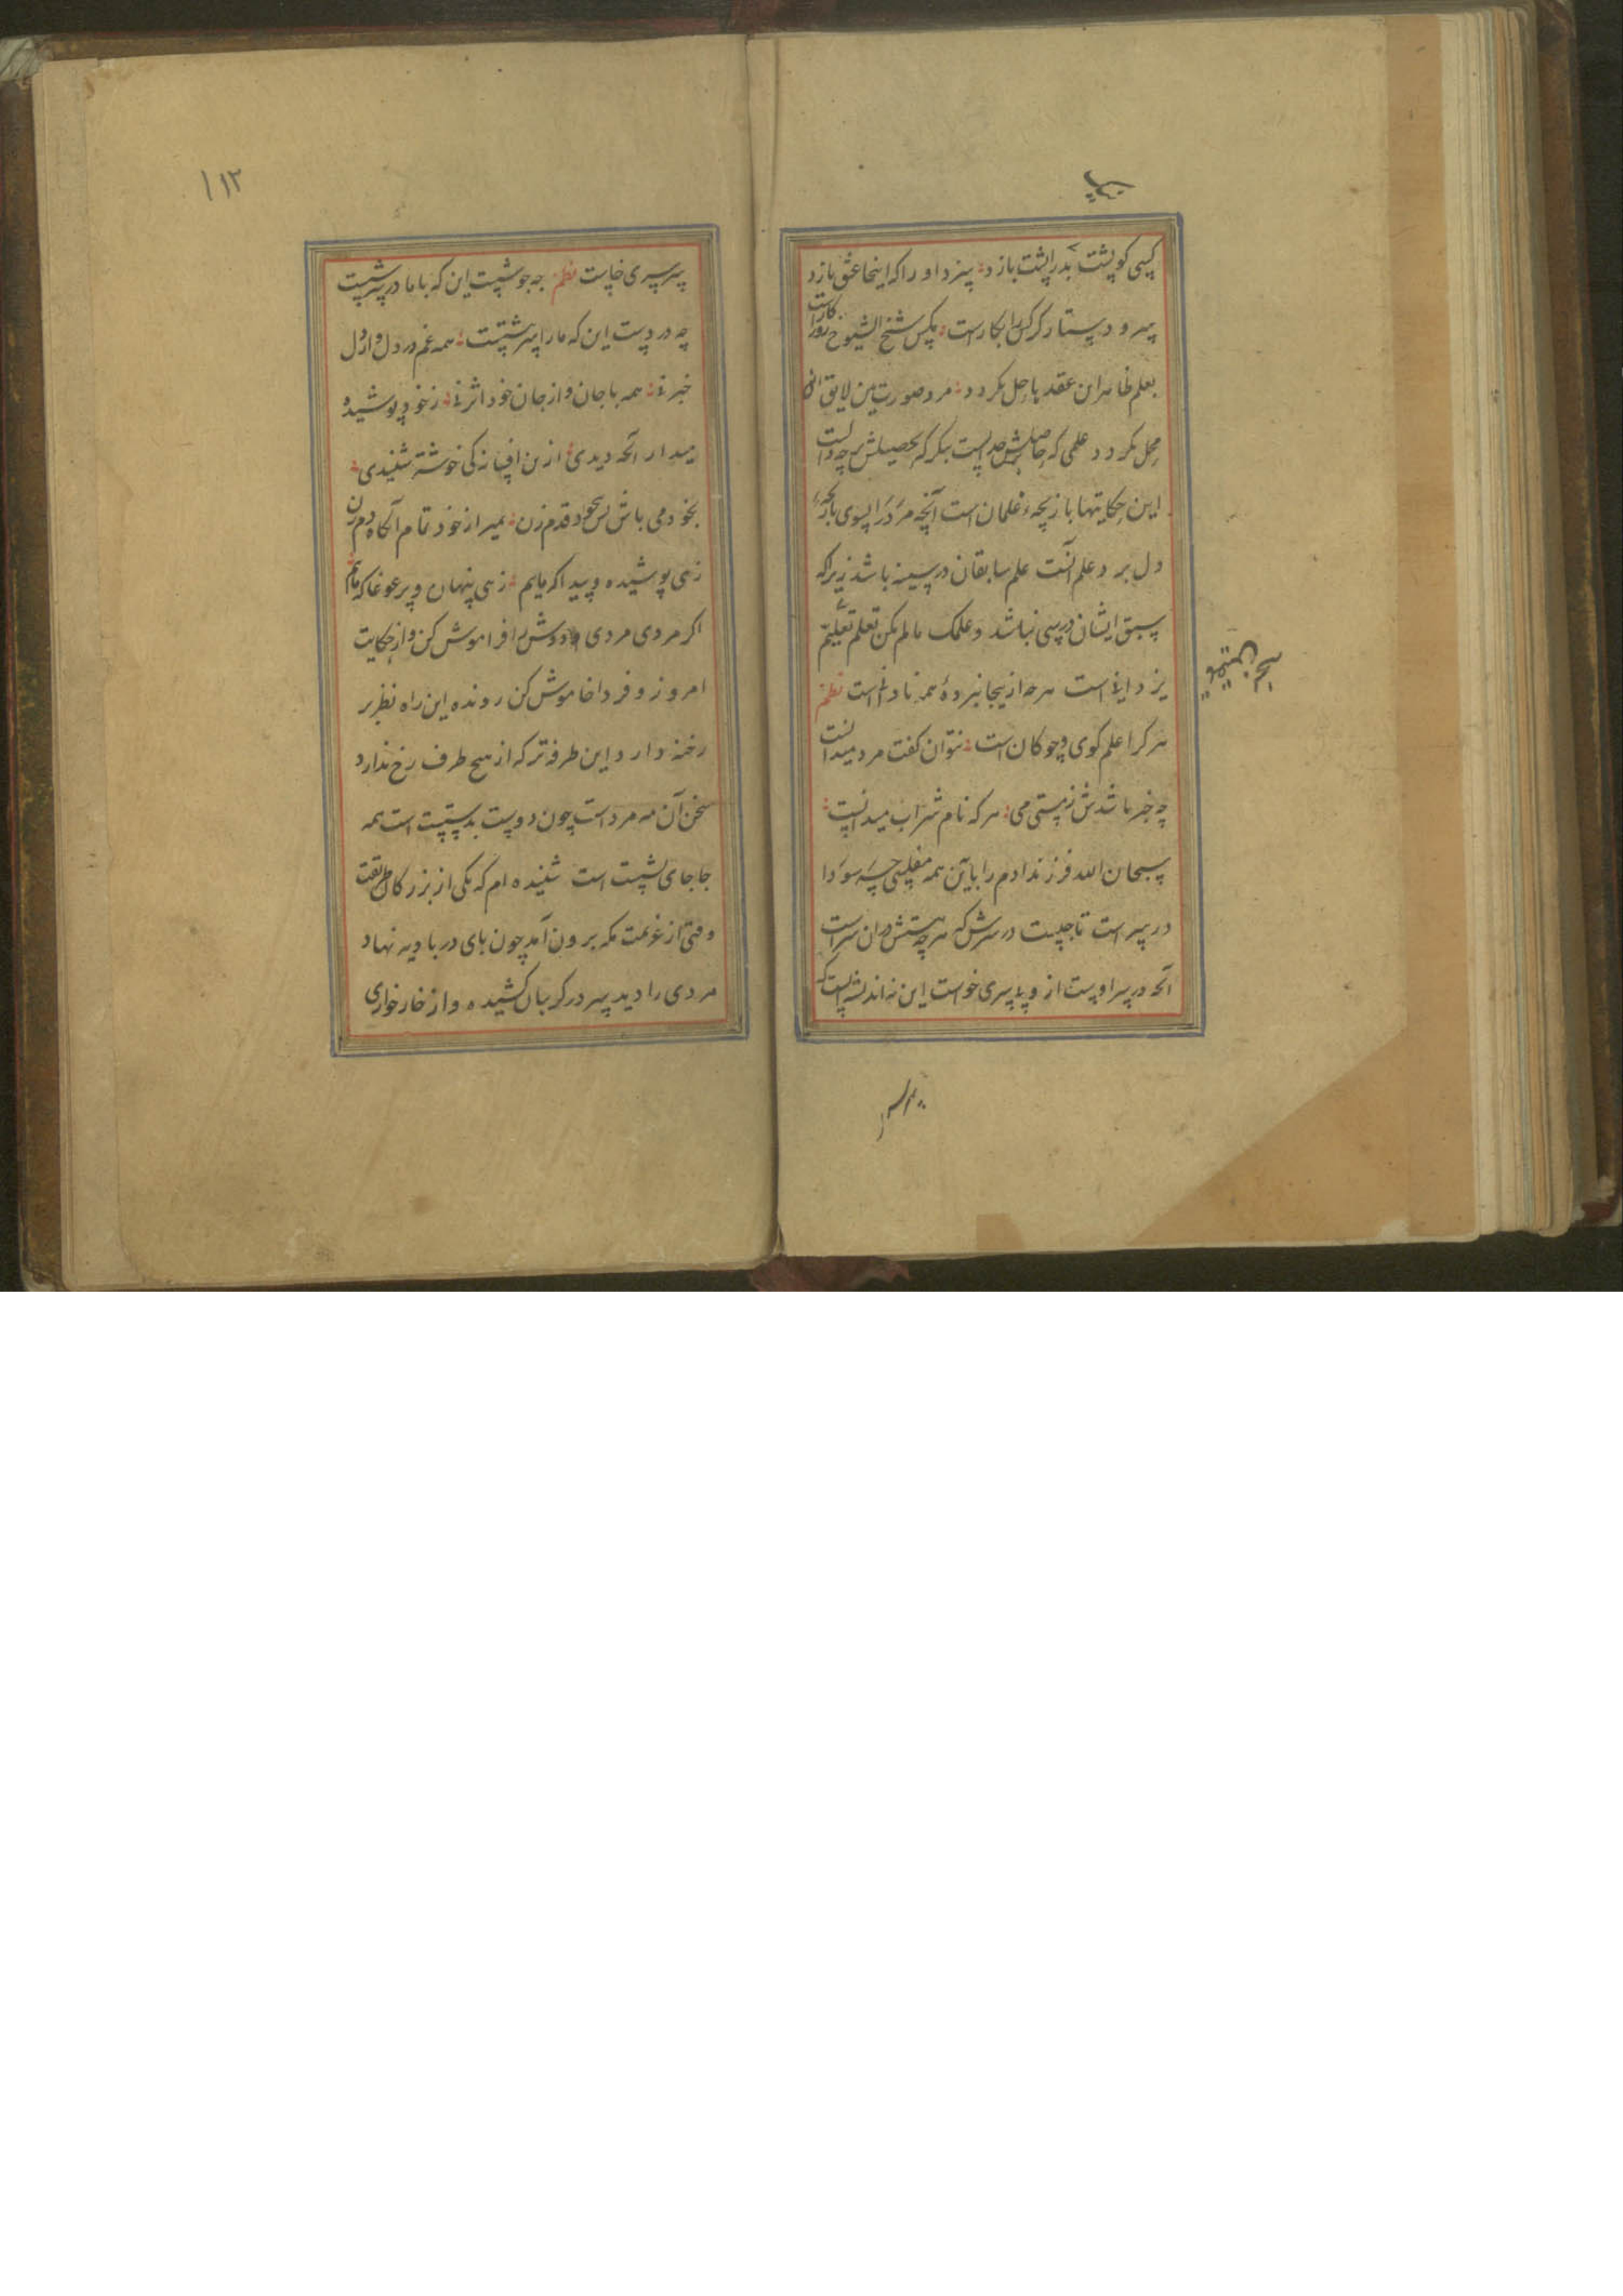 کسی کو پشت بدر را پشت بازد سزد او را که اینجا عشق بازد
سر و دستار کر کل را بکارست شیخ الشیوخ روز کارست
بعلم ظاهر این عقد ها حل نکردد مرد صورت بین لایق این
محل نکردد علمی که حاصلش جدلست بنکر که تحصیلش برچه
این حکایتها بازیچه غلمان است آنچه مرد را بسوی
دل برد علم آنست علم سابقان در سینه باشد زیرا که
سبق ایشان درسی نباشد و علمک مالم تکن تعلم تعلیم
یزدانی است هرچه از نیجا نبرده همه نادانی است نظم
هر کرا علم کوی و چوکان است نتوان کفت مرد میدانست
چه خبر باشدش ز مستی می هر که نام شراب میدانست
سبحان الله فرزند ادم را باین همه مفلسی چه سودا
در سر است تا چیست در سرش که هرچه هستش دران سر است
آنچه در سر اوست از وی سرسری خواست این نه اندیشه است که
سرسری خاست نظم چه جوشست این که با ما در سرشتست
چه دردست این که ما را سرنبشتست همه غم در دل و از دل
خبر نه همه با جان و از جان خود اثر نه ز خود پوشیده
میدار آنچه دیدی ازین افسانه کی خوشتر شنیدی
بخود می باش بس بیخود قدم زن بمیر از خود تمام آنکاه دم زن
زهی پوشیده و پیدا که مایم زهی پنهان و پر غوغا که مایم
اکر مردی مردی و دوش را فراموش کن و از حکایت
امروز و فردا خاموش کن رونده این راه نظر بر
رخنه دارد و این طرفه تر که از هیچ طرف رخ ندارد
سخن آن مه مرد است چون دوست بدستست است همه
جا جای است شنیده ام که یکی از بزرکان طریقت
وقتی از عزیمت مکه برون آمد چون پای در بادیه نهاد
مردی را دید سر در کریبان کشیده و از خار خواری
۱۱۲